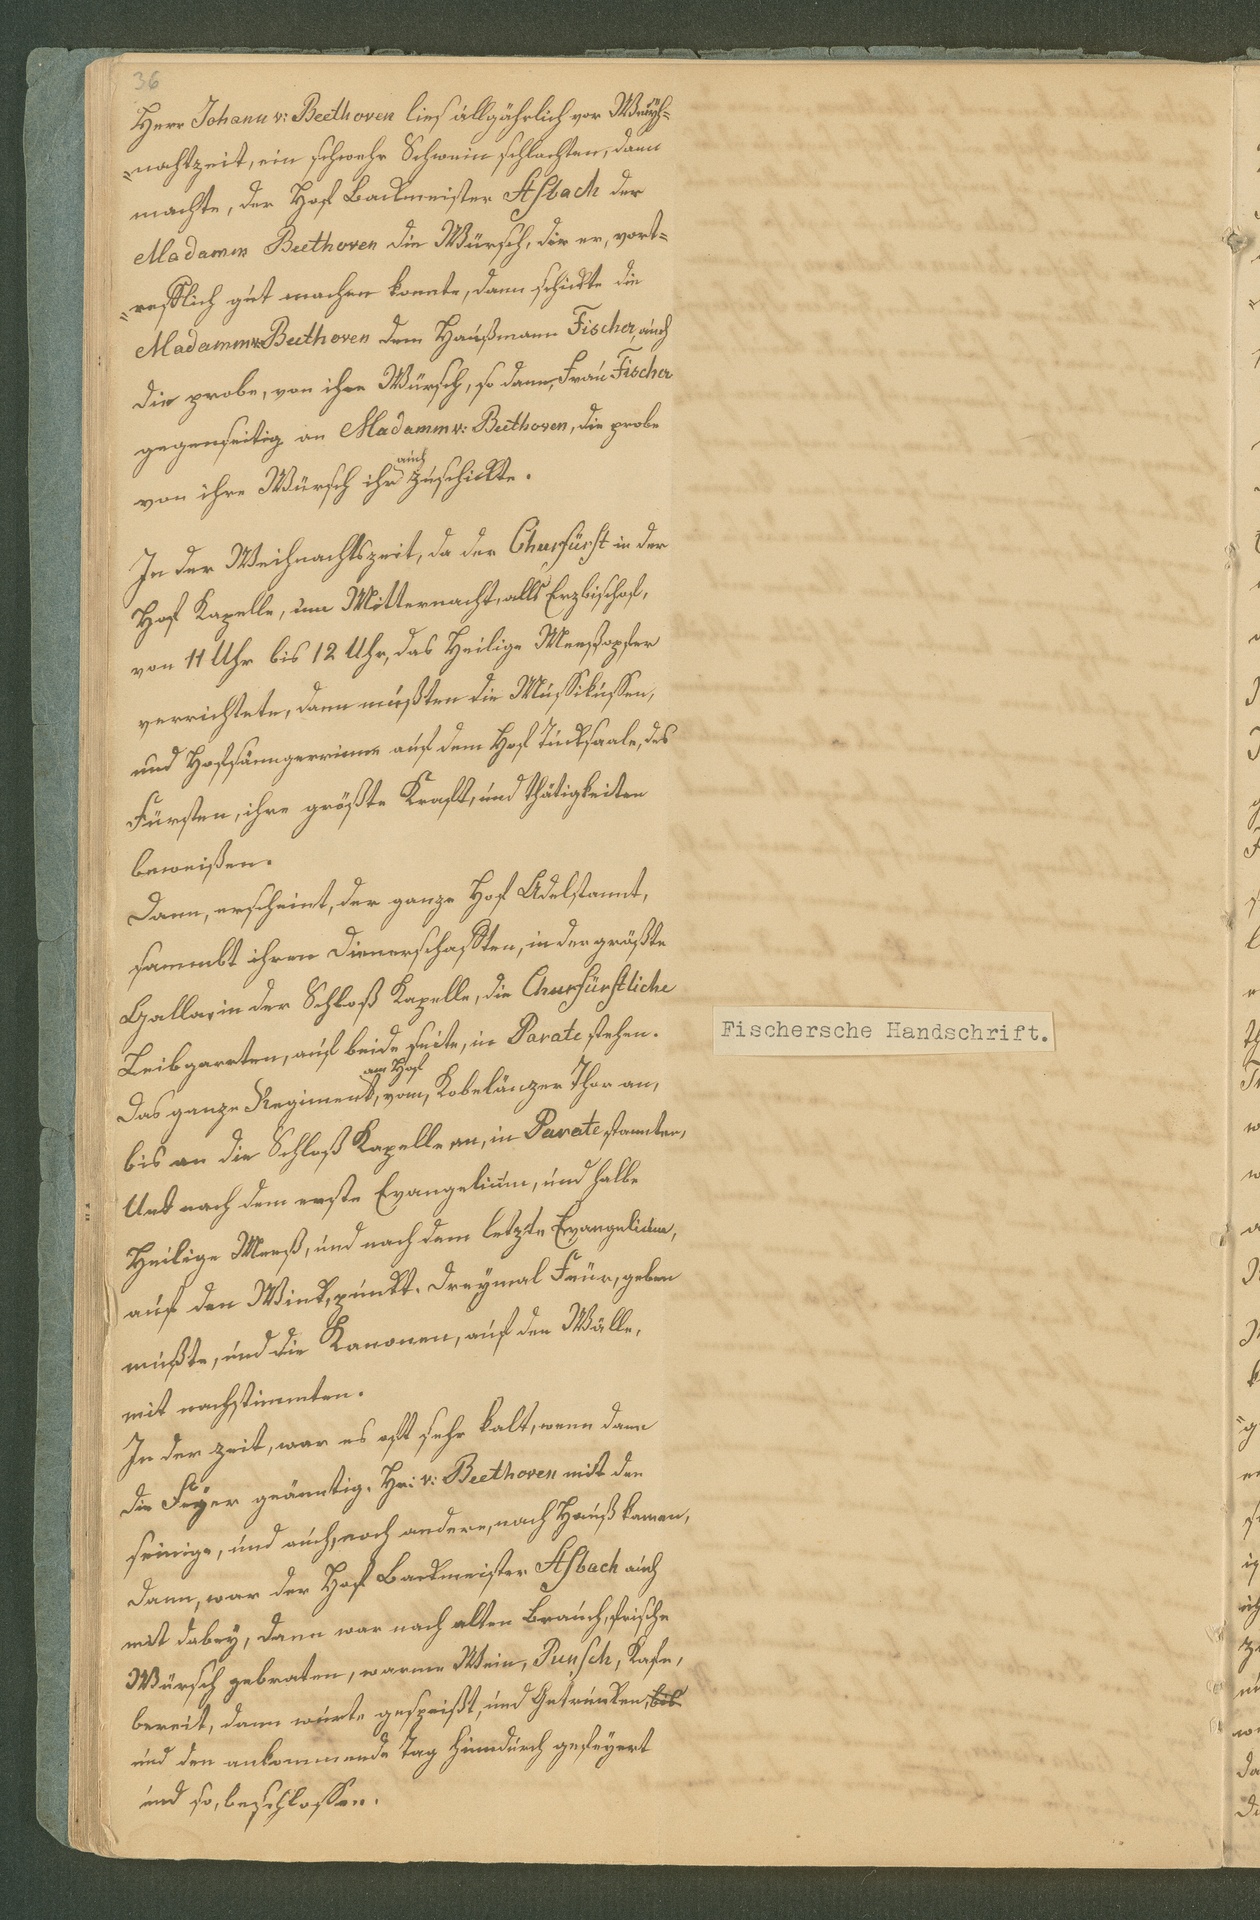 36
Herr Johann v: Beethoven lies allgährlich vor Weyh=
=nachtzeit, ein schwehr Schwein schlachten, dann
machte, der Hof Backmeister Asbach der
Madamm Beethoven die Würsch, die er, vort=
=refflich gut machen konnte, dann schickte die
Madamm v: Beethoven dem Haußmann Fischer, auch
die probe, von ihre Würsch, so dann, Frau Fischer
gegenseitig an Madamm v: Beethoven, die probe
von ihre Würsch ihr auch zuschickte.
In der Weihnachtszeit, da der Churfürst in der
Hof Kapelle, um Mitternacht, alls Erzbischof,
von 11 Uhr bis 12 Uhr, das Heilige Meeßopfer
verrichtete, dann mußten die Mussikussen,
und Hofsänngerrinne auf dem Hof Tucksaale, des
Fürsten, ihre größte Kraft, und thätigkeiten
beweißen.
Dann, erscheint, der ganze Hof Adelstannt,
sammbt ihren Dienerschafften, in der größte
Galla, in der Schloß Kapelle, die Churfürstliche
Leibgarrten, auf beide seite, in Parate stehen.
Das ganze Regiment, am Hof vom, Kobelänzer Thor an,
bis an die Schloß Kapelle an, in Parate stannten,
Unt nach dem erste Evangelium, und halbe
Heilige Meeß, und nach dem letzte Evangelium,
auf den Wink, punkt. Dreymal Feür, geben
mußte, und die Kanonen, auf den Wälle,
mit nachstimmten.
In der zeit, war es oft sehr kalt, wenn dann
die Feyer geänntig. Hr: v: Beethoven mit den
seinige, und auch, noch andere, nach Hauß kamen,
Dann, war der Hof Backmeister Asbach auch
mit dabey, dann war nach alten Brauch, frische
Würsch gebraten, warme Wein, Punsch, Kafe,
bereit, dann wurte gespeißt, und Getrunken,
und den ankommende Tag hinndurch gefeyert
und so, beschlossen.
Fischersche Handschrift.